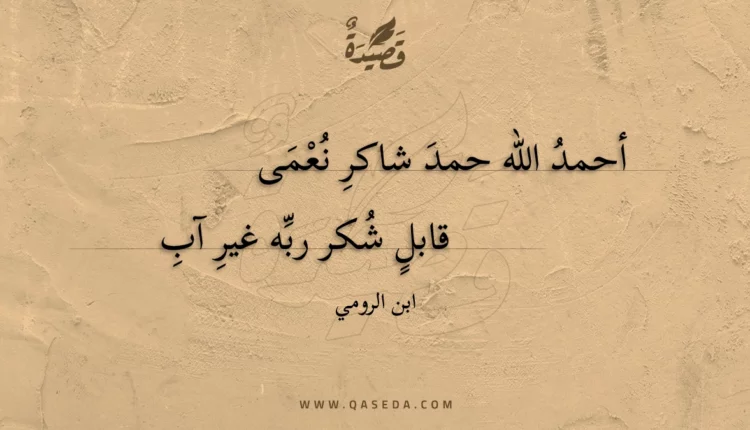 قَصِيْدَةٌ
أحمدُ الله حمدَ شاكرِ نُعْمَى
قابلٍ شُكر ربِّه غيرِ آبِ
ابن الرومي
WWW.QASEDA.COM